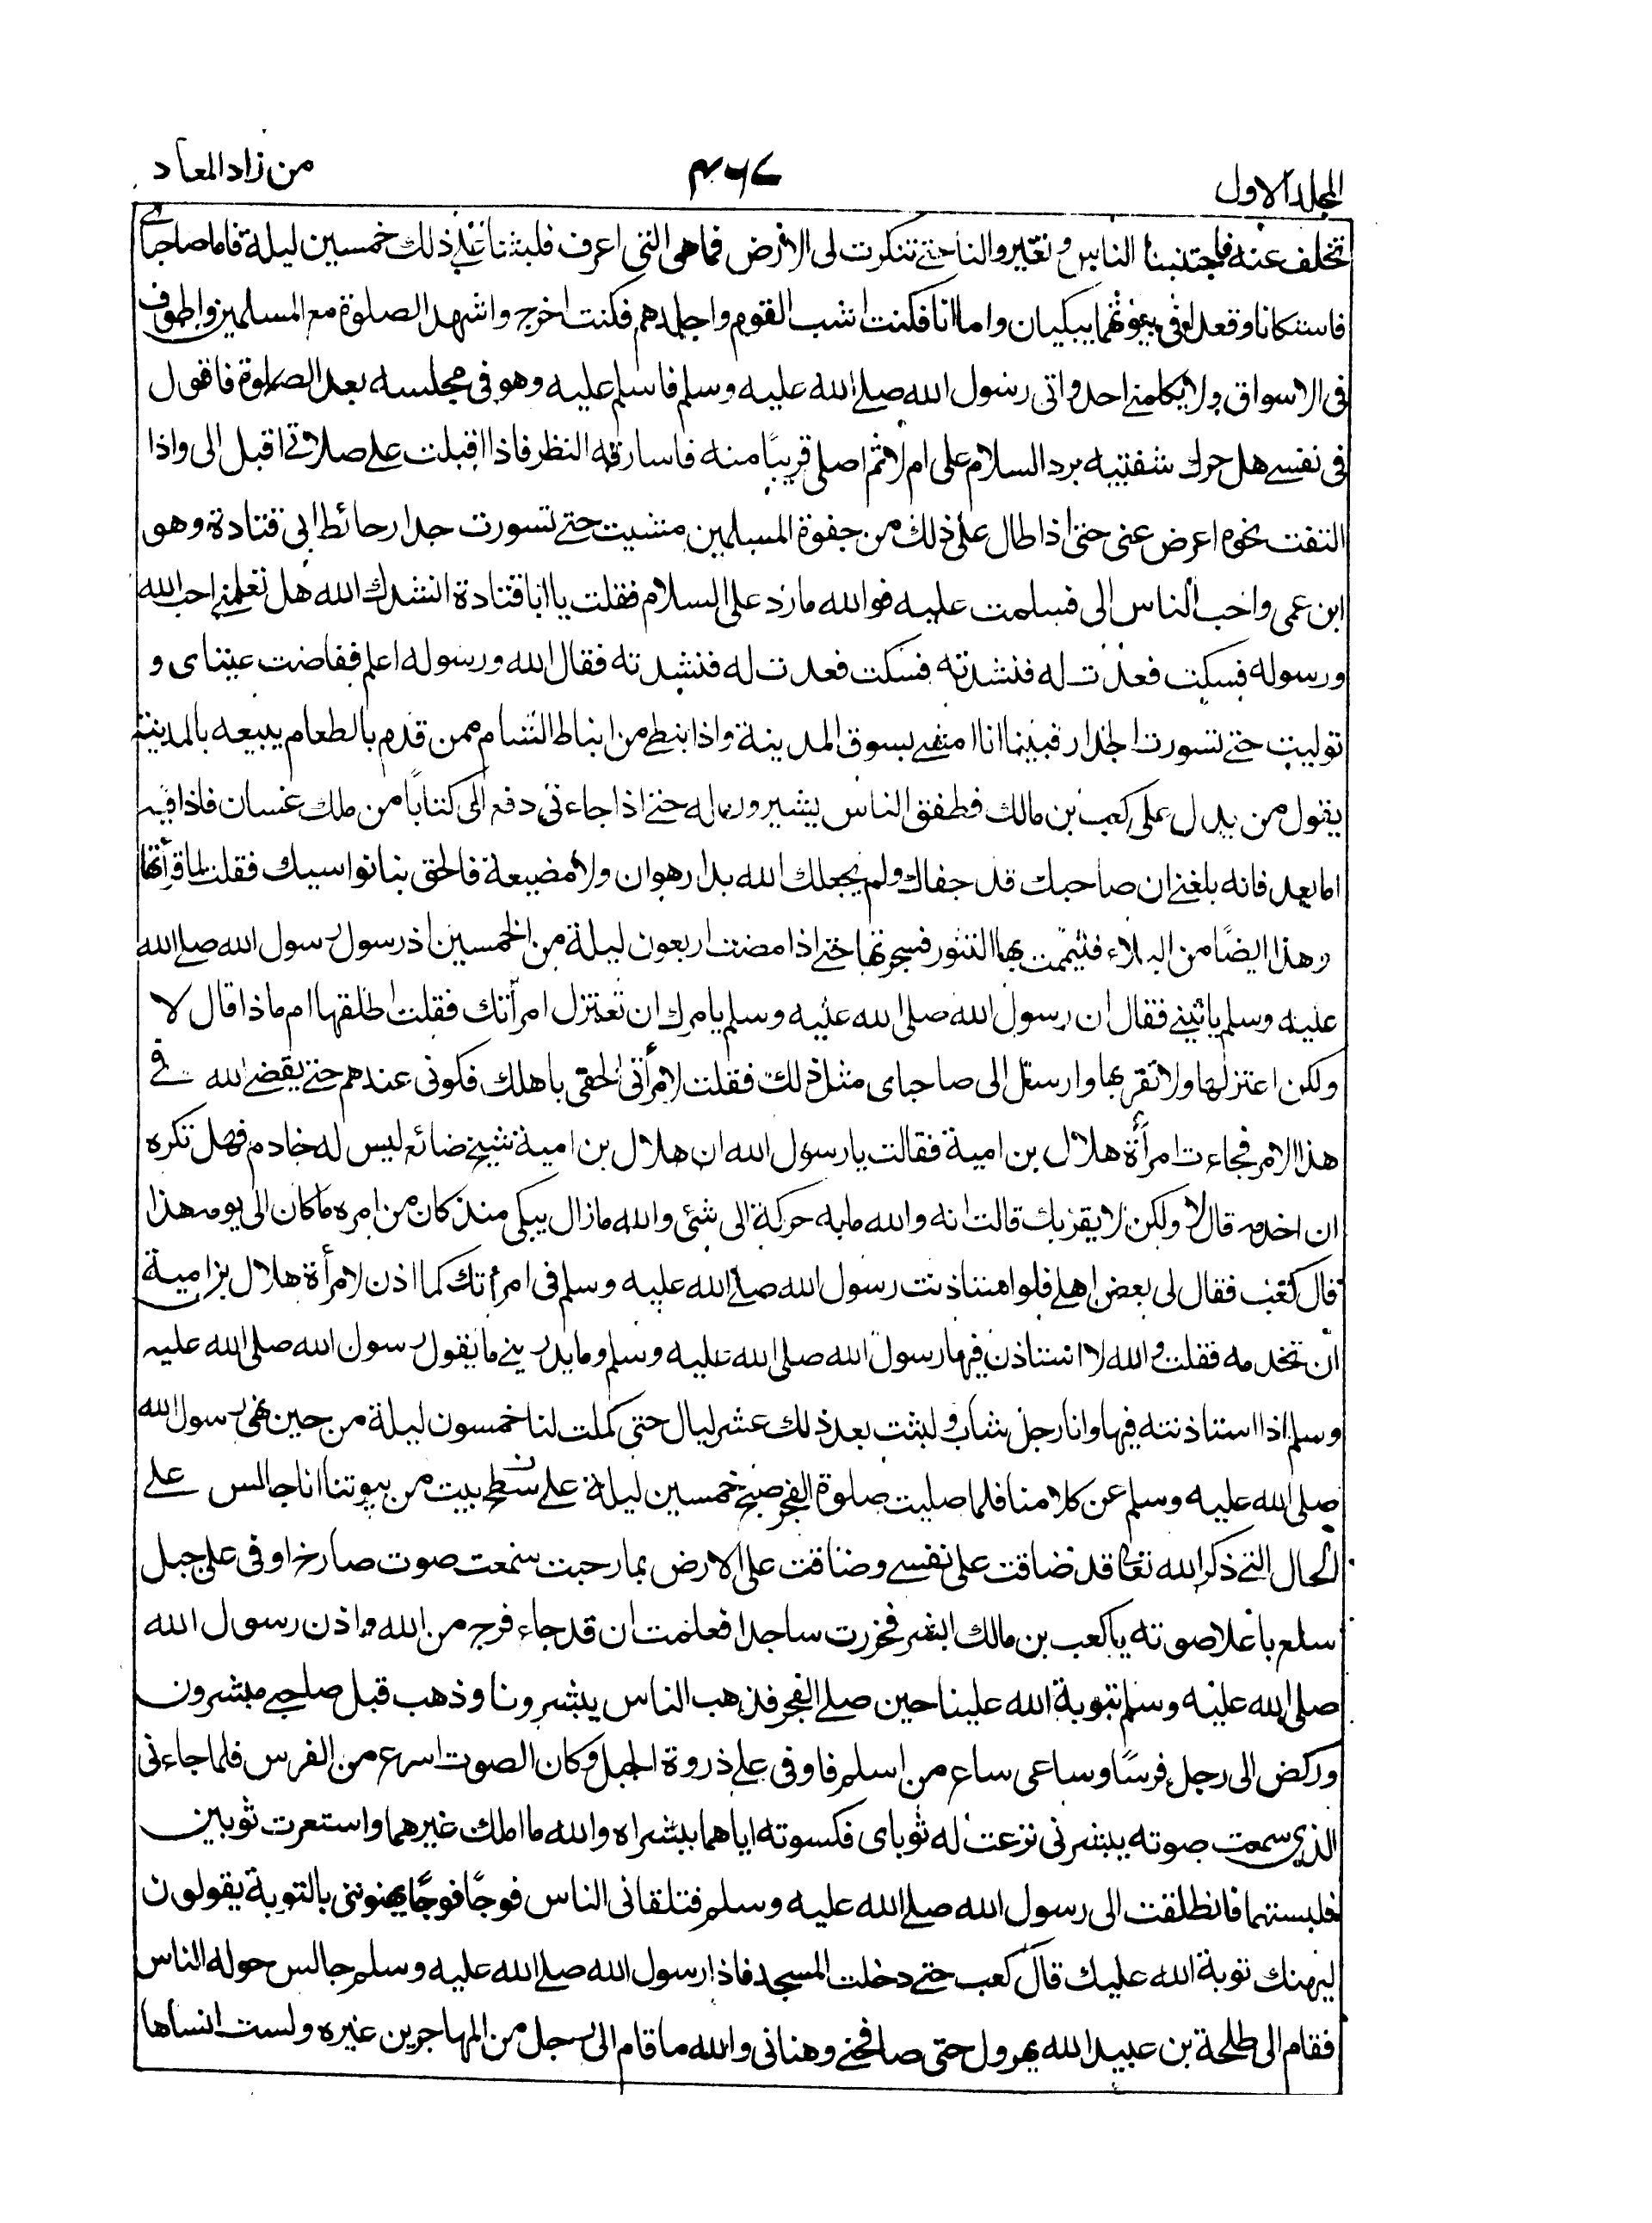 المجلد الاول
۴۶۷
من زاد المعاد
تخلف عنه فاجتنبنا الناس وتغيروا لنا حتى تنكرت لى الارض فما هى التى اعرف فلبثنا على ذلك خمسين ليلة فاما صاحباى
فاستكانا وقعدا فى بيوتهما يبكيان واما انا فكنت اشب القوم واجلدهم فكنت اخرج واشهد الصلوة مع المسلمين واطوف
فى الاسواق ولا يكلمنى احد واتى رسول الله صلى الله عليه وسلم فاسلم عليه وهو فى مجلسه بعد الصلوة فاقول
فى نفسى هل حرك شفتيه برد السلام على ام لا ثم اصلى قريبًا منه فاسارقه النظر فاذا اقبلت على صلاتى اقبل الى واذا
التفت نحوه اعرض عنى حتى اذا طال على ذلك من جفوة المسلمين مشيت حتى تسورت جدار حائط ابى قتادة وهو
ابن عمى واحب الناس الى فسلمت عليه فوالله ما رد على السلام فقلت يا ابا قتادة انشدك الله هل تعلمنى احب الله
ورسوله فسكت فعدت له فنشدته فسكت فعدت له فنشدته فقال الله ورسوله اعلم ففاضت عيناى و
توليت حتى تسورت الجدار فبينما انا امشى بسوق المدينة واذا نبطى من انباط الشام ممن قدم بالطعام يبيعه بالمدينة
يقول من يدل على كعب بن مالك فطفق الناس يشيرون له حتى اذا جاءنى دفع الى كتابًا من ملك غسان فاذا فيه
اما بعد فانه بلغنى ان صاحبك قد جفاك ولم يجعلك الله بدار هوان ولا مضيعة فالحق بنا نواسيك فقلت لما قرأتها
وهذا ايضًا من البلاء فتيممت بها التنور فسجرتها حتى اذا مضت اربعون ليلة من الخمسين اذ رسول رسول الله صلى الله
عليه وسلم ياتينى فقال ان رسول الله صلى الله عليه وسلم يامرك ان تعتزل امرأتك فقلت اطلقها ام ماذا قال لا
ولكن اعتزلها ولا تقربها وارسل الى صاحباى مثل ذلك فقلت لامرأتى الحقى باهلك فكونى عندهم حتى يقضى الله فى
هذا الامر فجاءت امرأة هلال بن امية فقالت يا رسول الله ان هلال بن امية شيخ ضائع ليس له خادم فهل تكره
ان اخدمه قال لا ولكن لا يقربك قالت انه والله ما به حركة الى شئ والله ما زال يبكى منذ كان من امره ما كان الى يومه هذا
قال كعب فقال لى بعض اهلى فلو استاذنت رسول الله صلى الله عليه وسلم فى امرأتك كما اذن لامرأة هلال بن امية
ان تخدمه فقلت والله لا استاذن فيها رسول الله صلى الله عليه وسلم وما يدرينى ما يقول رسول الله صلى الله عليه
وسلم اذا استاذنته فيها وانا رجل شاب ولبثت بعد ذلك عشر ليال حتى كملت لنا خمسون ليلة من حين نهى رسول الله
صلى الله عليه وسلم عن كلامنا فلما صليت صلوة الفجر صبح خمسين ليلة على سطح بيت من بيوتنا انا جالس على
الحال التى ذكر الله تعالى قد ضاقت على نفسى وضاقت على الارض بما رحبت سمعت صوت صارخ اوفى على جبل
سلع باعلا صوته يا كعب بن مالك ابشر فخررت ساجدا فعلمت ان قد جاء فرج من الله واذن رسول الله
صلى الله عليه وسلم بتوبة الله علينا حين صلى الفجر فذهب الناس يبشرونا وذهب قبل صاحبى مبشرون
وركض الى رجل فرسًا وساعى ساع من اسلم فاوفى على ذروة الجبل وكان الصوت اسرع من الفرس فلما جاءنى
الذى سمعت صوته يبشرنى نزعت له ثوباى فكسوته اياهما ببشراه والله ما املك غيرهما واستعرت ثوبين
فلبستهما فانطلقت الى رسول الله صلى الله عليه وسلم فتلقانى الناس فوجًا فوجًا يهنوننى بالتوبة يقولون
ليهنك توبة الله عليك قال كعب حتى دخلت المسجد فاذا رسول الله صلى الله عليه وسلم جالس حوله الناس
فقام الى طلحة بن عبيد الله يهرول حتى صافحنى وهنانى والله ما قام الى رجل من المهاجرين غيره ولست انساها